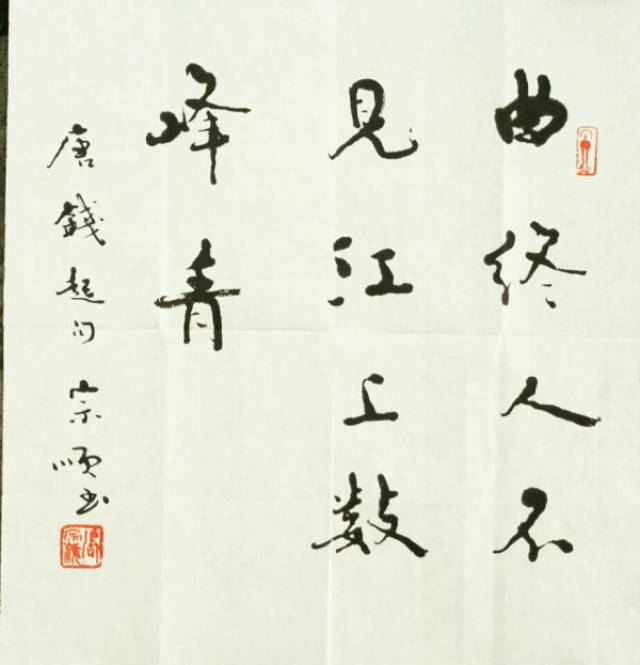 曲终人不
见江上数
峰青
唐錢起句 宗順书